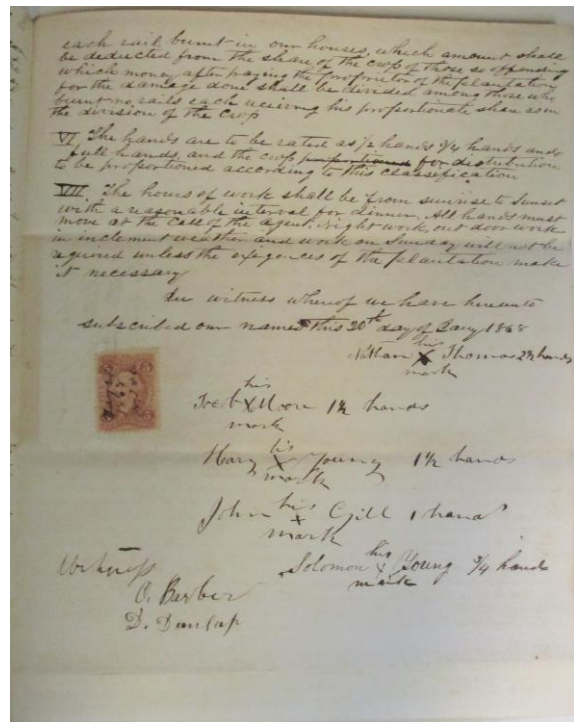 each rail burnt in our houses, which amount shall
be deducted from the share of the crop of those so offending
which money after paying the proprietor of the plantation
for the damage done shall be divided among those who
burnt no rails each receiving his proportionate share as in
the division of the crop
VI The hands are to be rated as 1/2 hands 3/4 hands and
full hands, and the crop proportioned for distribution
to be proportioned according to this classification
VII The hours of work shall be from sunrise to Sunset
with a reasonable interval for dinner. All hands must
move at the call of the agent. Night work, out door work
in inclement weather and work on Sunday will not be
required unless the exigences of the plantation make
it necessary
In witness whereof we have hereunto
subscribed our names this 20th day of Jany 1868
his
Nathan X Thomas 2 1/2 hands
mark
his
X Moore 1 1/2 hands
mark
his
Hary X Young 1 1/2 hands
mark
his
John X Gill 1 hand
mark
his
Solomon X Young 3/4 hand
mark
Witness
O. Barber
D. Dunlap
5 5